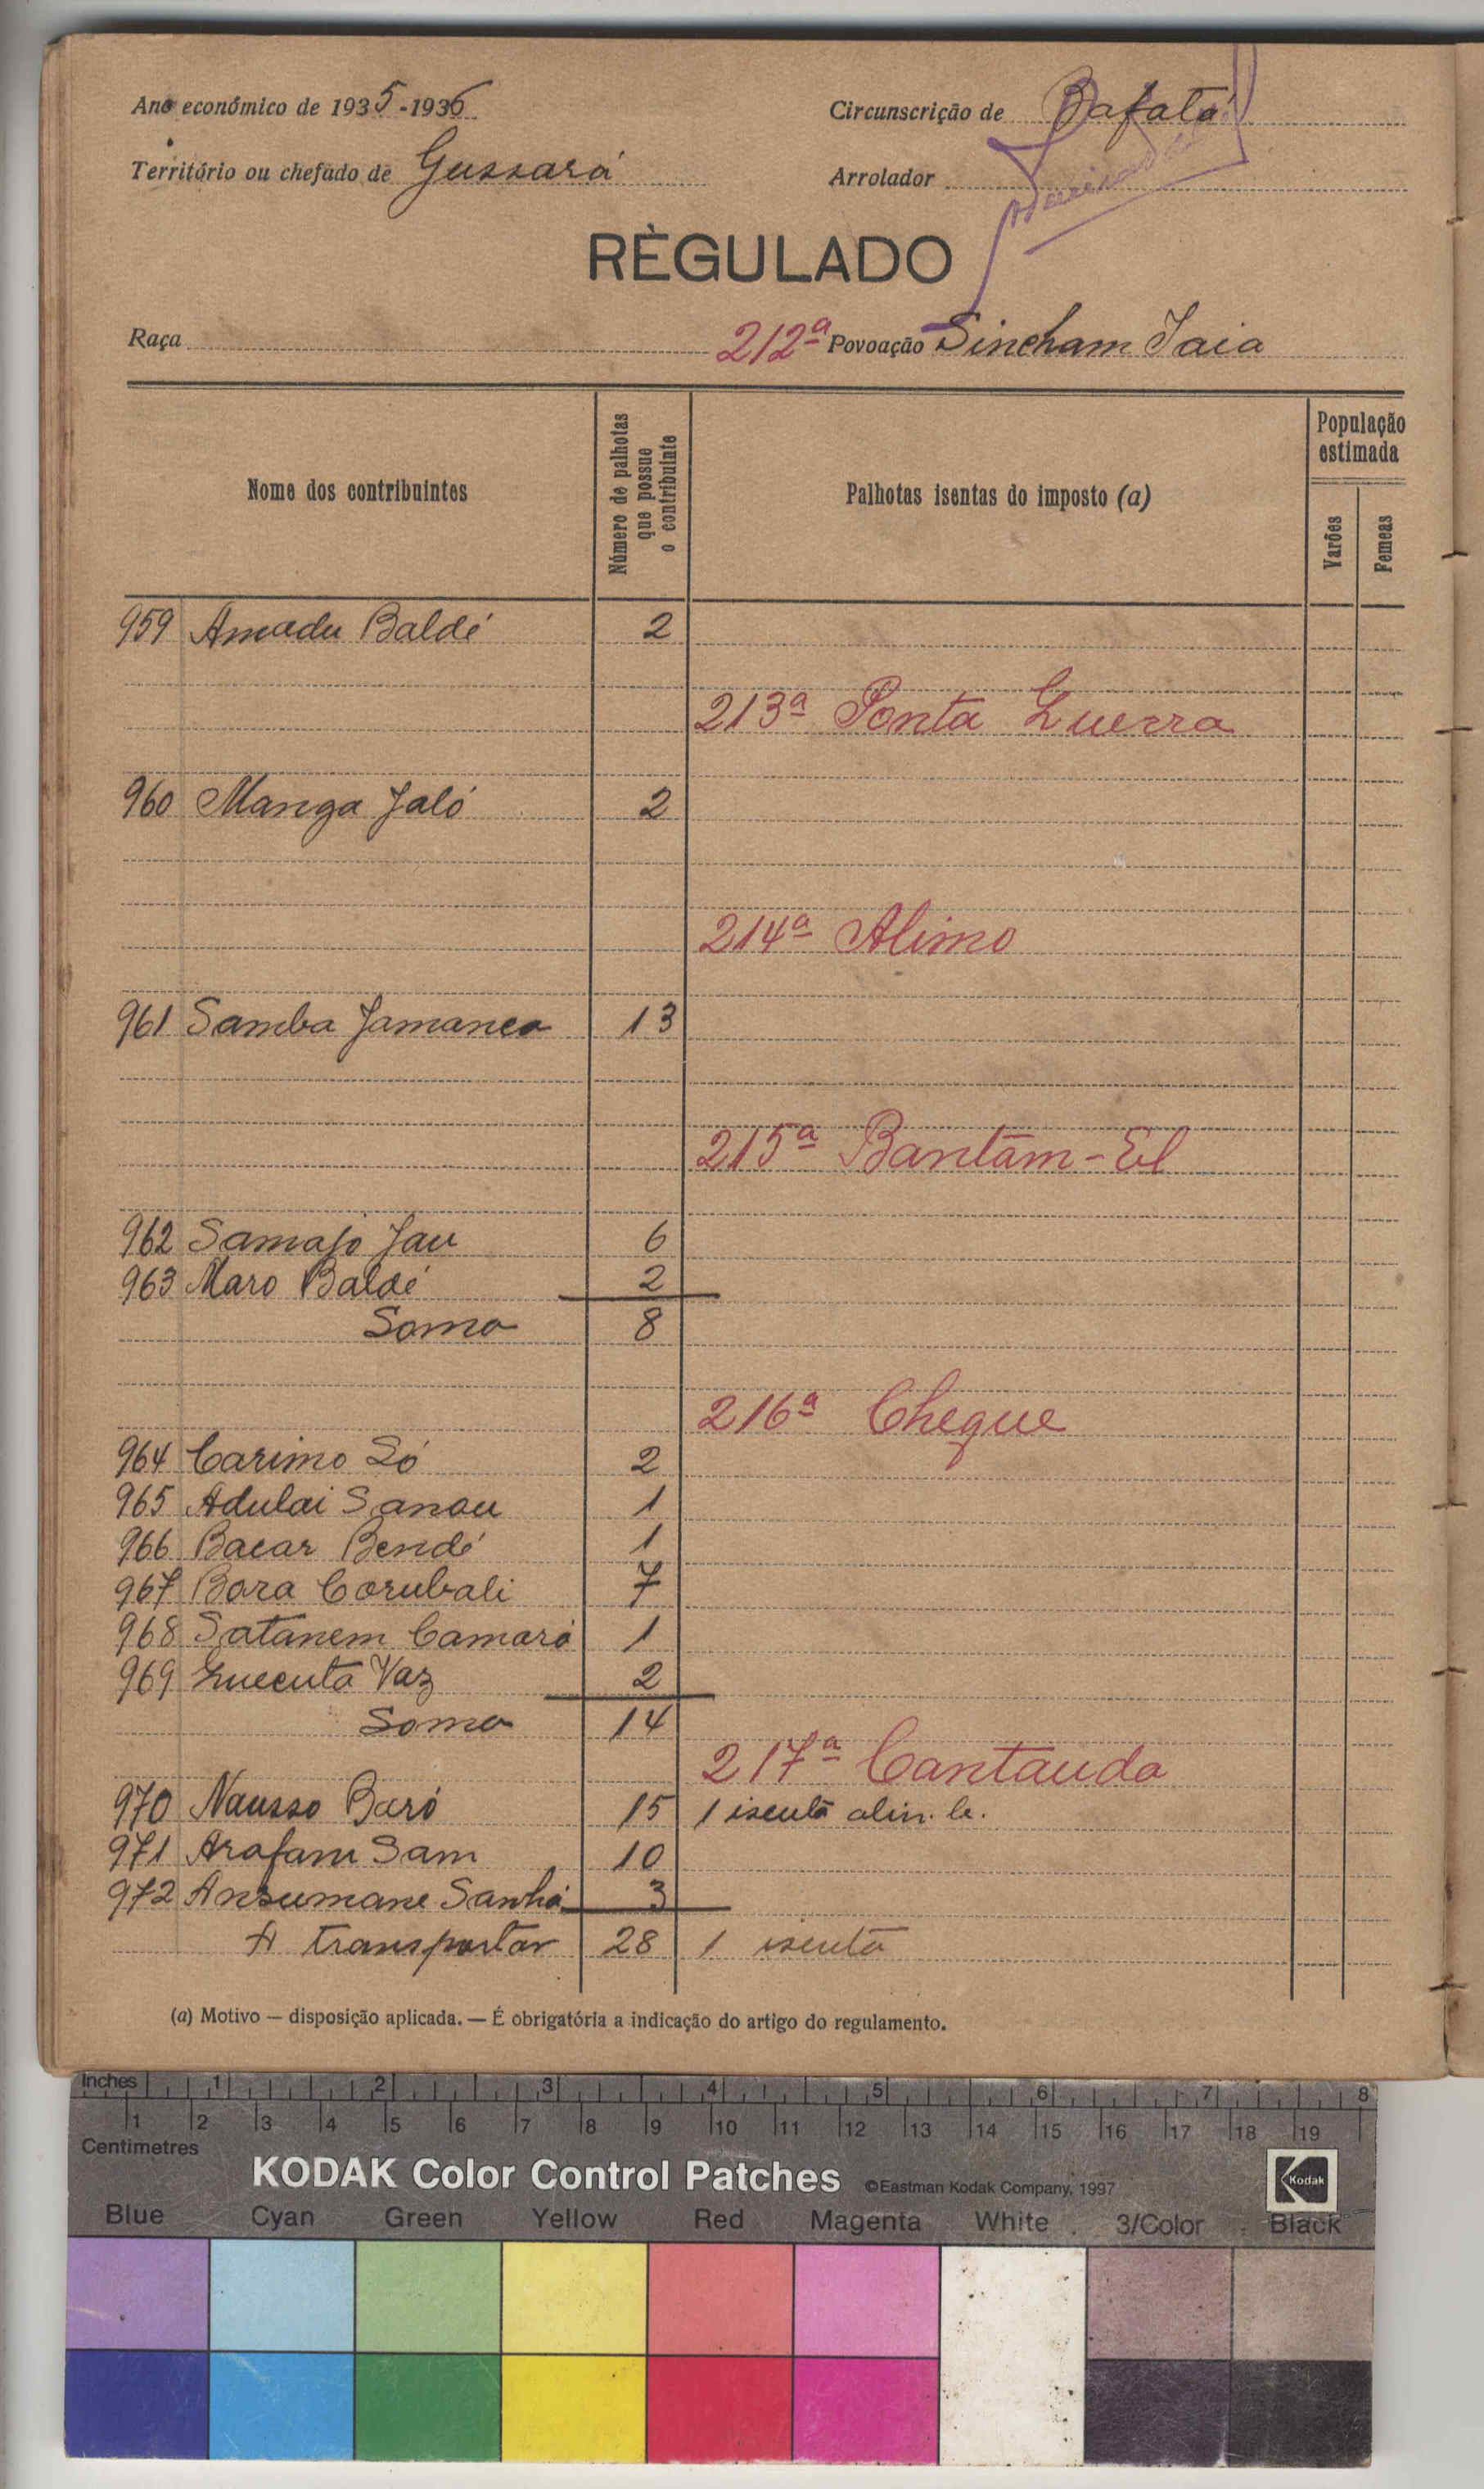 Ano económico de 1935-1936 Circunscrição de Bafatá
Território ou chefado de Gussará Arrolador
RÈGULADO
Raça 212ª Povoação Sincham Jaia
Nome dos contribuintes
Número de palhotas que possue o contribuinte
Palhotas isentas do imposto (a)
População estimada
Varões
Femeas
959 Amadu Baldé 2
213ª Ponta Guerra
960 Manga Jaló 2
214ª Alimo
961 Samba Jamanca 13
215ª Bantam-El
962 Samajo Jau 6
963 Maro Baldé 2
Soma 8
216ª Cheque
964 Carimo Só 2
965 Adulai Sanou 1
966 Bacar Bendé 1
967 Bora Corubali 7
968 Satanem Camará 1
969 Guecuta Vaz 2
Soma 14
217ª Cantauda
970 Nausso Baró 15 1 isenta alin. b.
971 Arafam Sam 10
972 Ansumane Sanhá 3
A transportar 28 1 isenta
(a) Motivo — disposição aplicada. — É obrigatória a indicação do artigo do regulamento.
Inches 1 2 3 4 5 6 7 8
1 2 3 4 5 6 7 8 9 10 11 12 13 14 15 16 17 18 19
Centimetres
KODAK Color Control Patches ©Eastman Kodak Company, 1997 Kodak
Blue Cyan Green Yellow Red Magenta White 3/Color Black